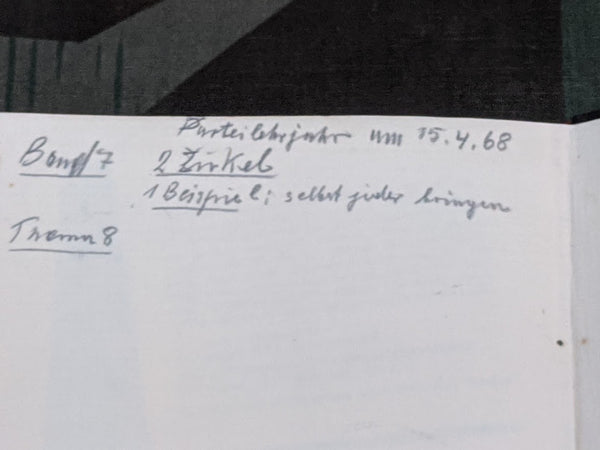 Parteilehrjahr um 15.4.68
Band 7 2 Zirkel
1 Beispiel; selbst jeder bringen
Thema 8